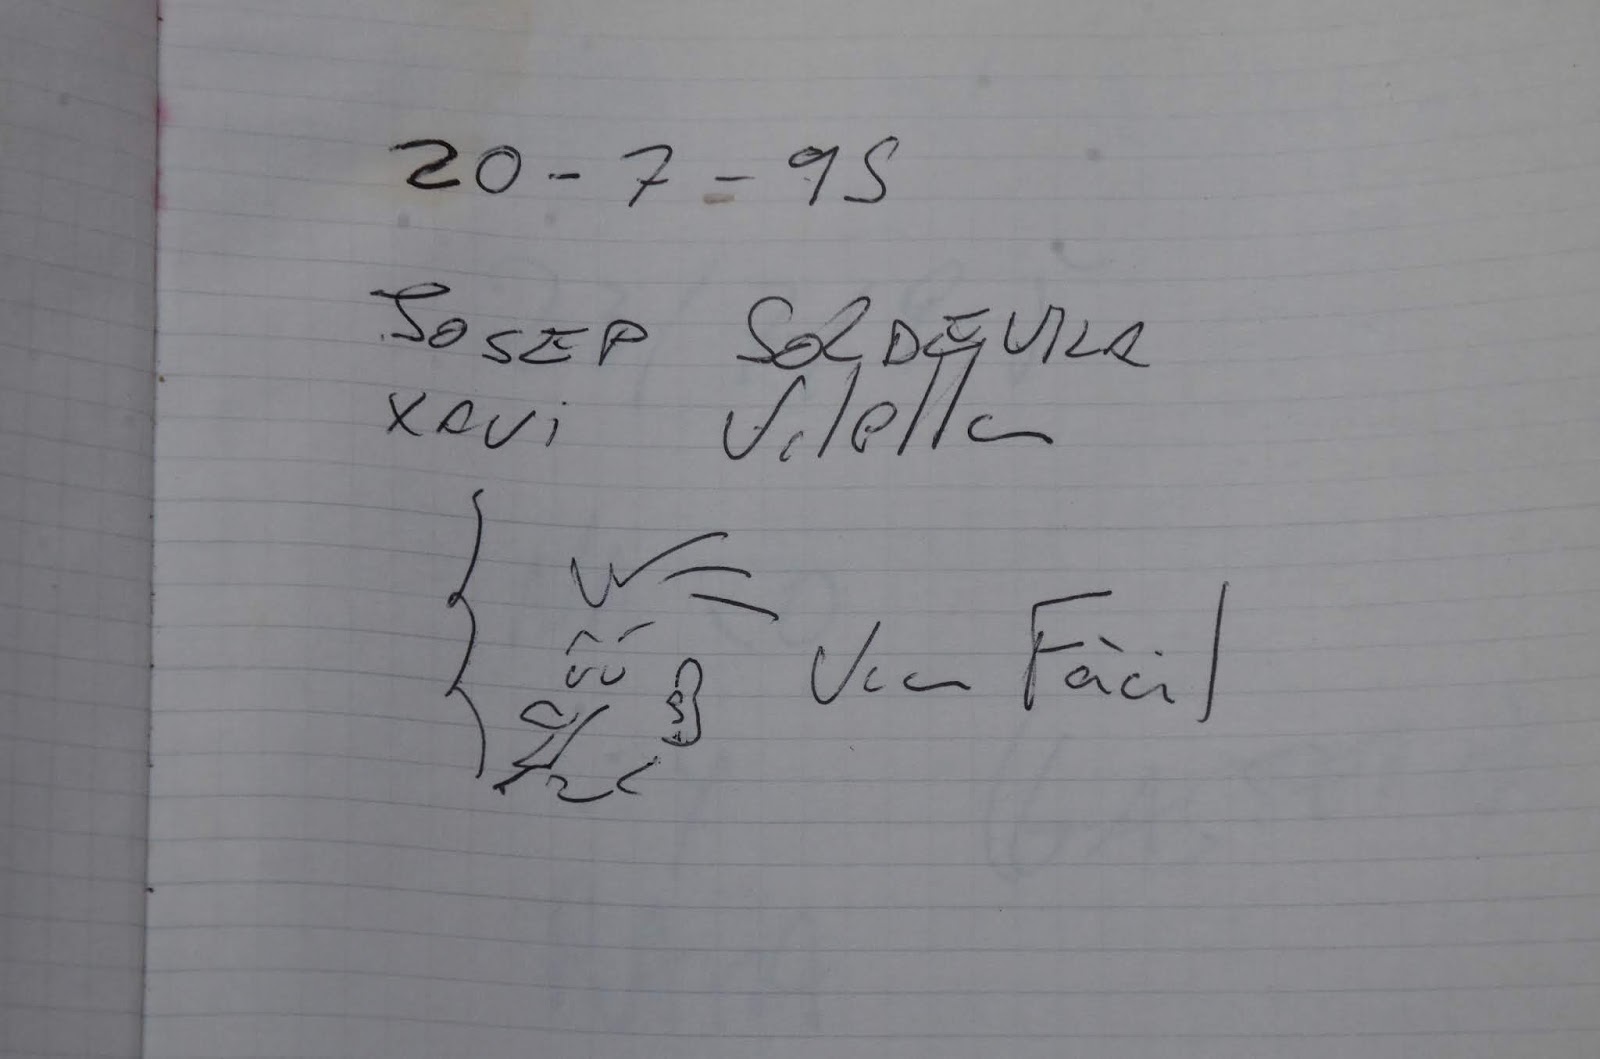 20-7-95
JOSEP SOLDEVILA
XAVI Vilella
Via Fàcil